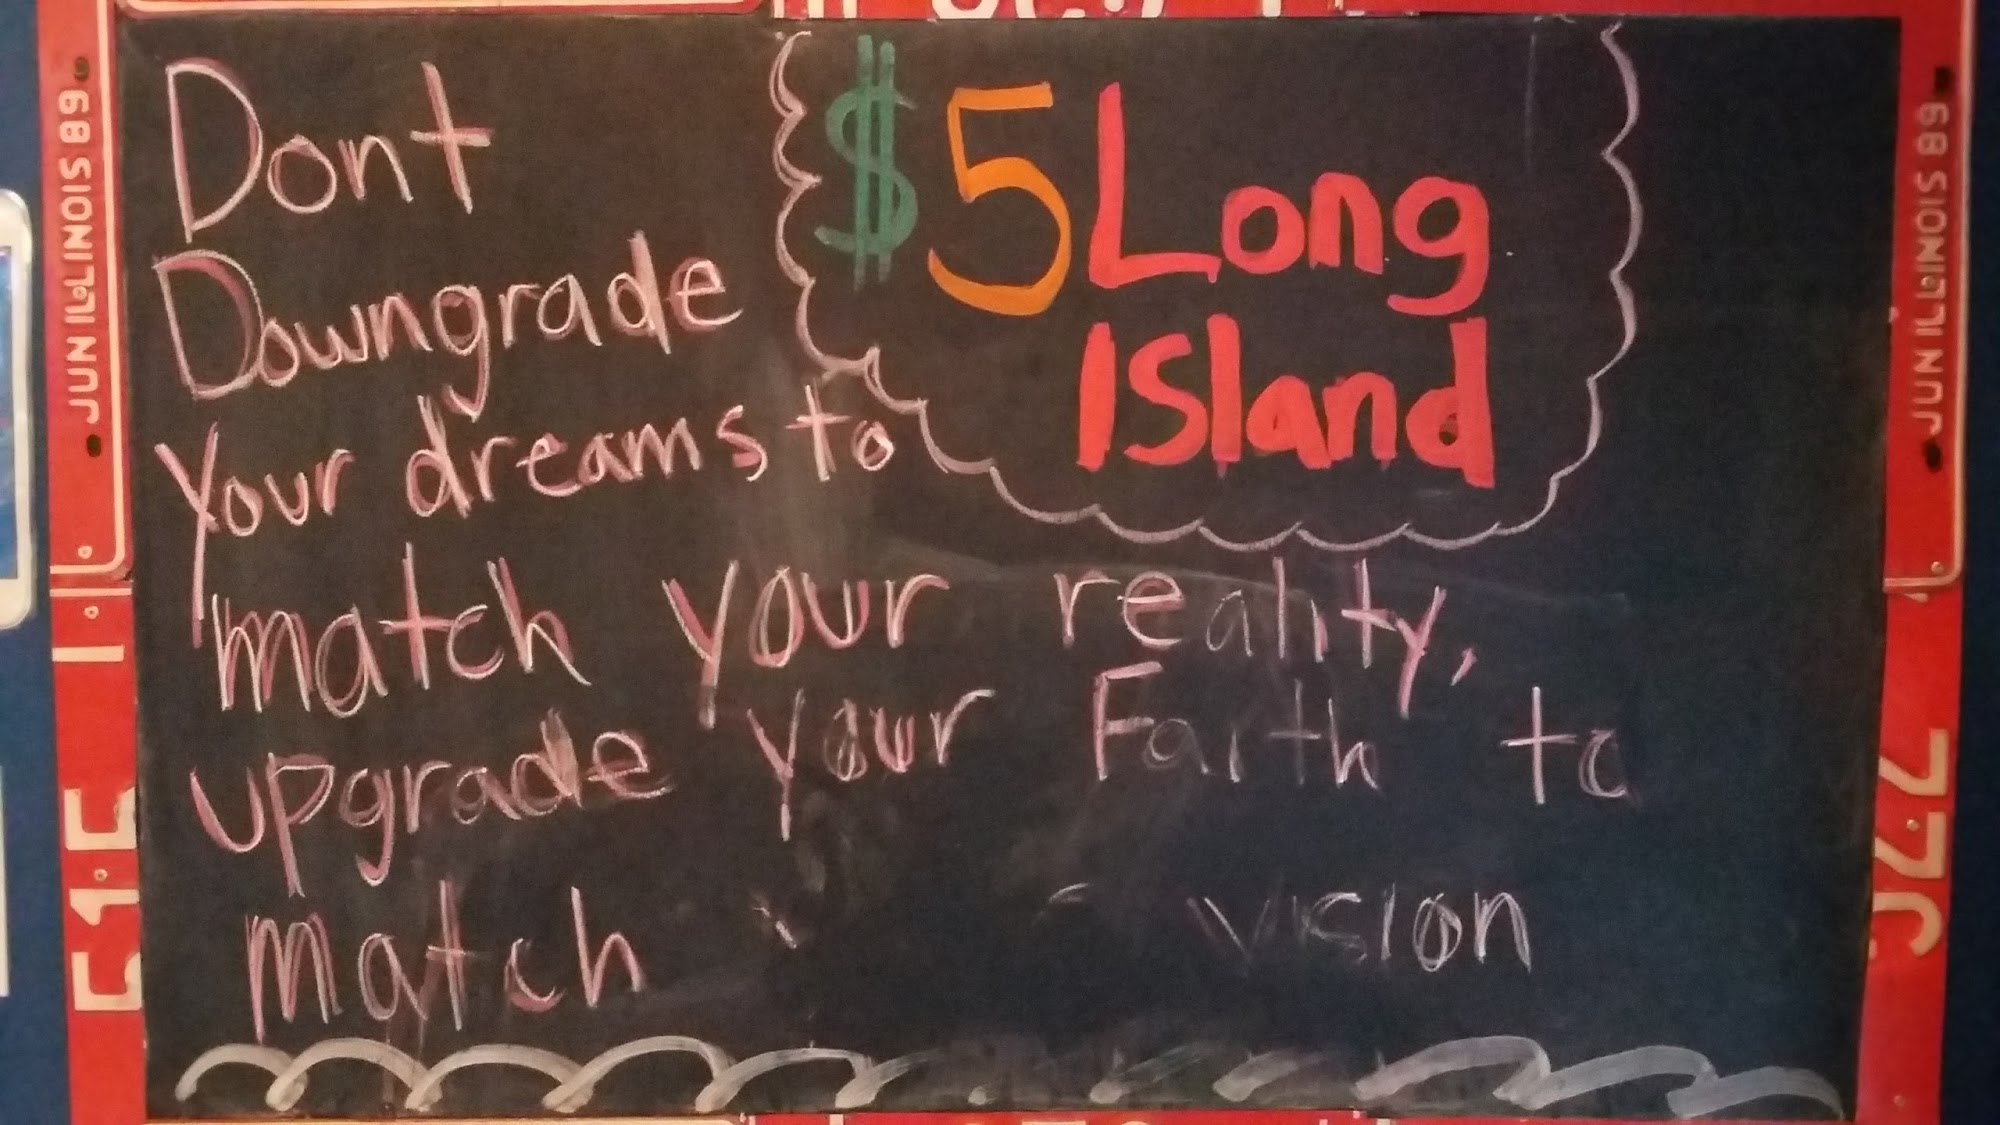 Dont
Downgrade
Your dreams to
match your reality,
upgrade your Faith to
match vision
$5 Long
Island
JUN ILLINOIS 89
JUN ILLINOIS 89